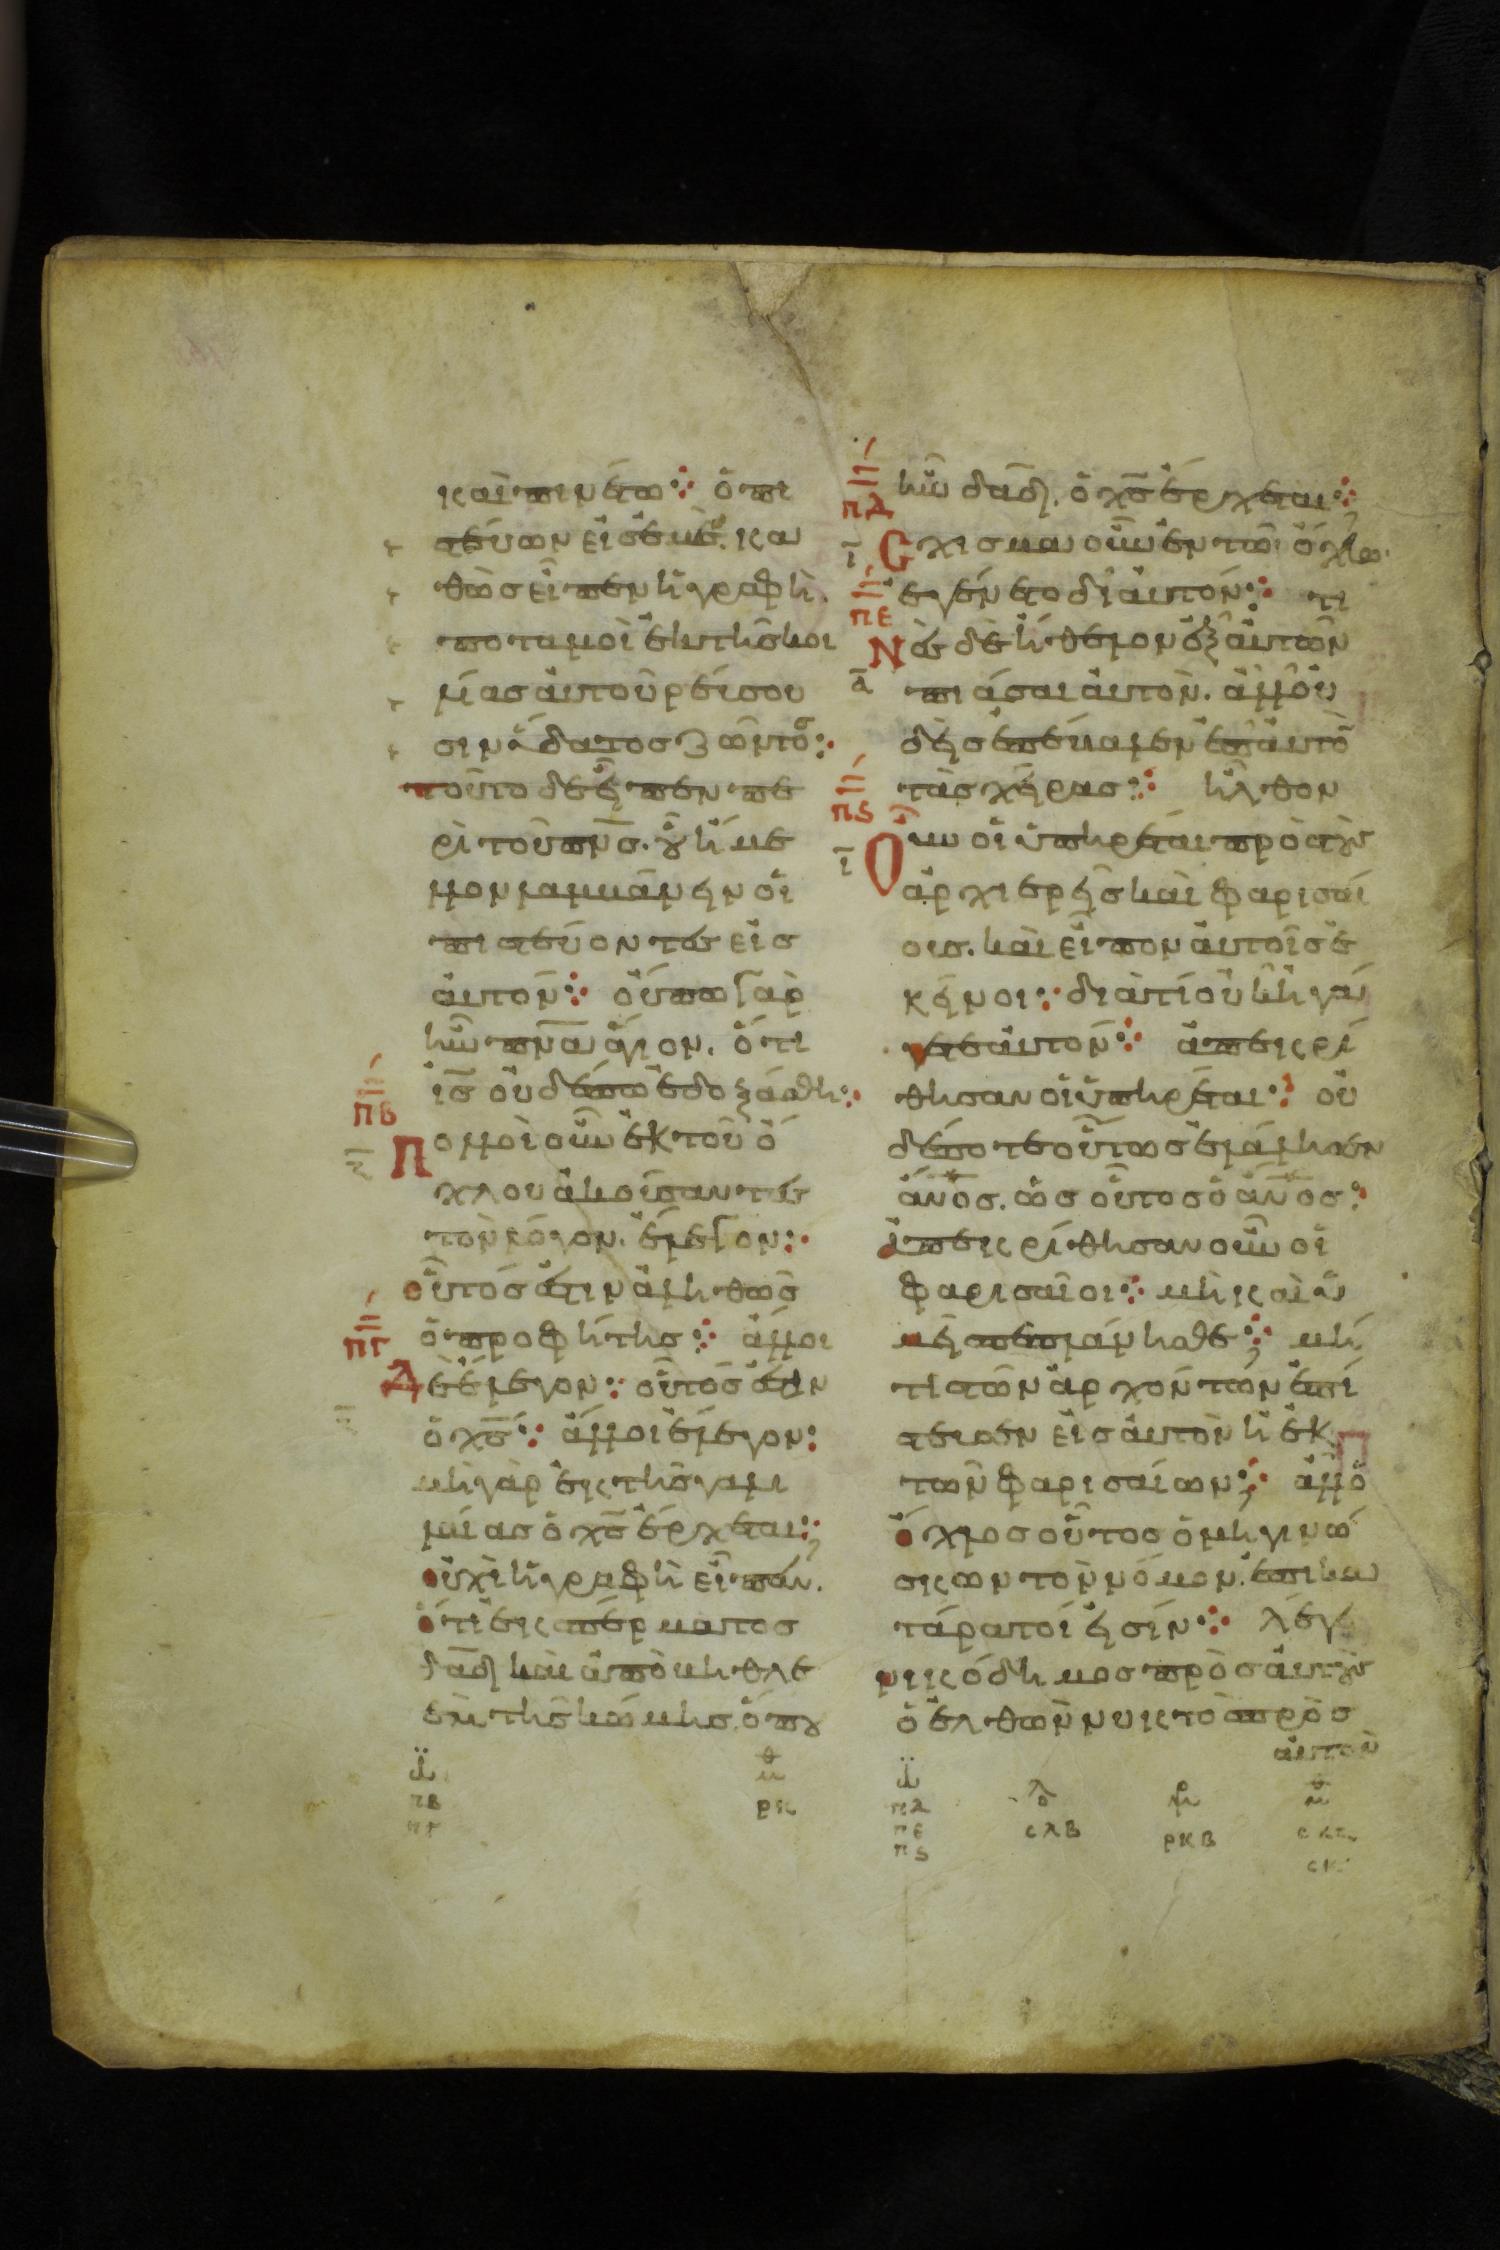 καὶ πινέτω: ὁ πι
στεύων εἰς ἐμέ. κα
θὼς εἶπεν ἡ γραφὴ.
ποταμοὶ ἐκ τῆς κοι
λίας αὐτοῦ ρεύσου
σιν ὕδατος ζῶντος:
τοῦτο δὲ εἶπεν πε
ρὶ τοῦ πνς. οὗ ἤμε
λλον λαμβάνειν οἱ
πιστεύοντες εἰς
αὐτόν: οὔπω γὰρ
ἦν πνα ἅγιον. ὅτι
ις οὐδέπω ἐδοξάσθη:
Πολλοὶ οὖν ἐκ τοῦ ὄ
χλου ἀκούσαντες
τὸν λόγον. ἔλεγον:
οὗτός ἐστιν ἀληθῶς
ὁ προφήτης: ἄλλοι
δὲ ἔλεγον: οὗτός ἐστιν
ὁ χς: ἄλλοι ἔλεγον:
μὴ γὰρ ἐκ τῆς γαλι
λαίας ὁ χς ἔρχεται:
οὐχὶ ἡ γραφὴ εἶπεν.
ὅτι ἐκ σπέρματος
δαδ καὶ ἀπὸ βηθλε
ὲμ τῆς κώμης. ὅπου
ιω
πβ
πγ
μθ
ρκ
πβ
πγ
ἦν δαδ. ὁ χς ἔρχεται:
Σχίσμα οὖν ἐν τῶ ὄχλω
ἐγένετο δι αὐτόν: τι
Νὲς δὲ ἤθελον ἐξ αὐτῶν
πιάσαι αὐτὸν. ἀλλ οὐ
δεὶς ἐπέβαλεν ἐπ αὐτὸ
τὰς χείρας: ἦλθον
Οὖν οἱ ὑπηρέται πρὸς τοὺς
ἀρχιερεῖς καὶ φαρισαί
ους. καὶ εἶπον αὐτοῖς ἐ
κεῖνοι: διατί οὐκ ἠγά
γετε αὐτόν: ἀπεκρί
θησαν οἱ ὑπηρέται: οὐ
δέποτε οὕτως ἐλάλησεν
ἄνος. ὡς οὗτος ὁ ἄνος:
ἀπεκρίθησαν οὖν οἱ
φαρισαῖοι: μὴ καὶ ὑ
μεῖς πεπλάνησθε: μή
τις τῶν ἀρχόντων ἐπί
στευσεν εἰς αὐτὸν ἢ ἐκ
τῶν φαρισαίων: ἀλλ ὁ
ὄχλος οὗτος ὁ μὴ γινώ
σκων τὸν νόμον. ἐπικα
τάρατοί εἰσίν: λέγει
νικόδημος πρὸς αὐτοὺς
ὁ ἐλθὼν νυκτὸς πρὸς
αὐτὸν
πδ
πε
πς
ιω
πδ
πε
πς
λο
σλβ
μρ
ρκβ
μθ